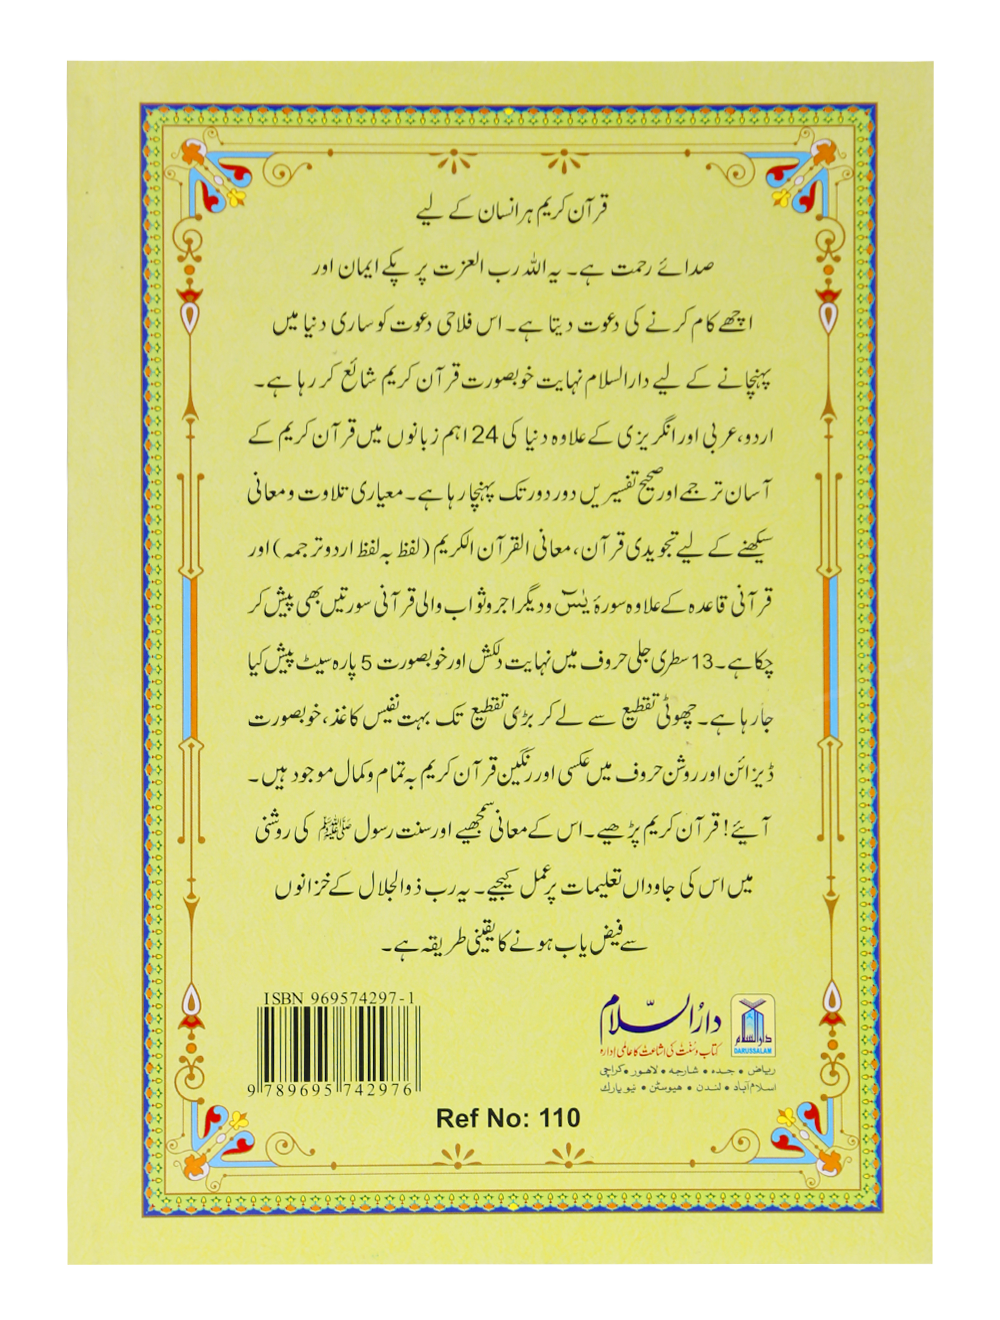 قرآن کریم ہر انسان کے لیے
صدائے رحمت ہے۔ یہ اللہ رب العزت پر پکے ایمان اور
اچھے کام کرنے کی دعوت دیتا ہے۔ اس فلاحی دعوت کو ساری دنیا میں
پہنچانے کے لیے دارالسلام نہایت خوبصورت قرآن کریم شائع کر رہا ہے۔
اردو، عربی اور انگریزی کے علاوہ دنیا کی 24 اہم زبانوں میں قرآن کریم کے
آسان ترجمے اور صحیح تفسیریں دور دور تک پہنچا رہا ہے۔ معیاری تلاوت و معانی
سیکھنے کے لیے تجویدی قرآن، معانی القرآن الکریم (لفظ بہ لفظ اردو ترجمہ) اور
قرآنی قاعدہ کے علاوہ سورۂ یٰسٓ و دیگر اجر و ثواب والی قرآنی سورتیں بھی پیش کر
چکا ہے۔ 13 سطری جلی حروف میں نہایت دلکش اور خوبصورت 5 پارہ سیٹ پیش کیا
جا رہا ہے۔ چھوٹی تقطیع سے لے کر بڑی تقطیع تک بہت نفیس کاغذ، خوبصورت
ڈیزائن اور روشن حروف میں عکسی اور رنگین قرآن کریم بہ تمام و کمال موجود ہیں۔
آیئے! قرآن کریم پڑھیے۔ اس کے معانی سمجھیے اور سنت رسول ﷺ کی روشنی
میں اس کی جاوداں تعلیمات پر عمل کیجیے۔ یہ رب ذوالجلال کے خزانوں
سے فیض یاب ہونے کا یقینی طریقہ ہے۔
ISBN 969574297-1
9 789695 742976
دارُالسّلام
دارالسلام
DARUSSALAM
کتاب و سنت کی اشاعت کا عالمی ادارہ
ریاض • جدہ • شارجہ • لاہور • کراچی
اسلام آباد • لندن • ہیوسٹن • نیو یارک
Ref No: 110